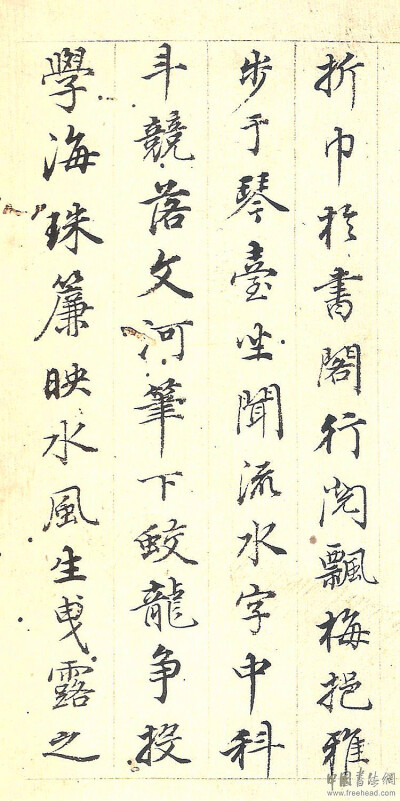 折巾於書閣行閱飄梅挹雅
步于琴臺坐聞流水字中科
斗競落文河筆下蛟龍争投
學海珠簾映水風生曳露之
中國書法網
www.freehead.com